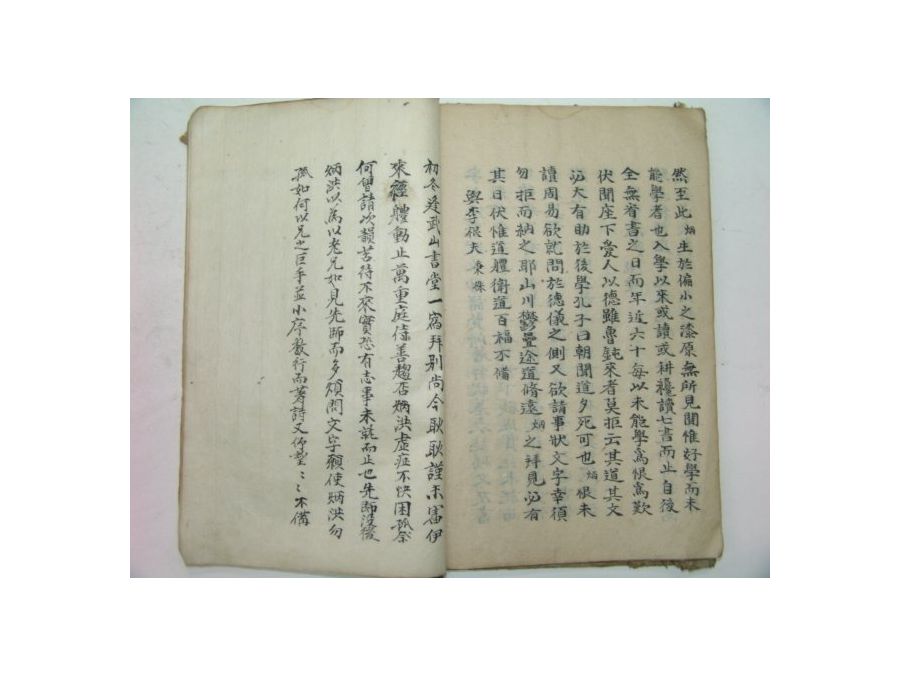 然至此炳生於偏小之漆原無所見聞惟好學而未
能學者也入學以來或讀或耕纔讀七書而止自後
全無看書之日而年近六十每以未能學爲恨爲歎
伏聞座下愛人以德雖魯鈍來者莫拒云其道其文
必大有助於後學孔子曰朝聞道夕死可也炳恨未
讀周易欲就問於德儀之側又欲請事狀文字幸須
勿拒而納之耶山川鬱疊途道脩遠炳之拜見必有
其日伏惟道體衛道百福不備
與李
初冬逢武山書堂一宿拜別尚今耿耿謹未審伊
來經體動止萬重庭候善趨否炳洪虛症不快困
何曾請次韻苦待不來實恐有志事未就而止也先師沒後
炳洪以爲以老兄如見先師而多煩問文字願使炳洪勿
孤如何以兄之巨手並小序數行而著詩又仰望〻〻不備